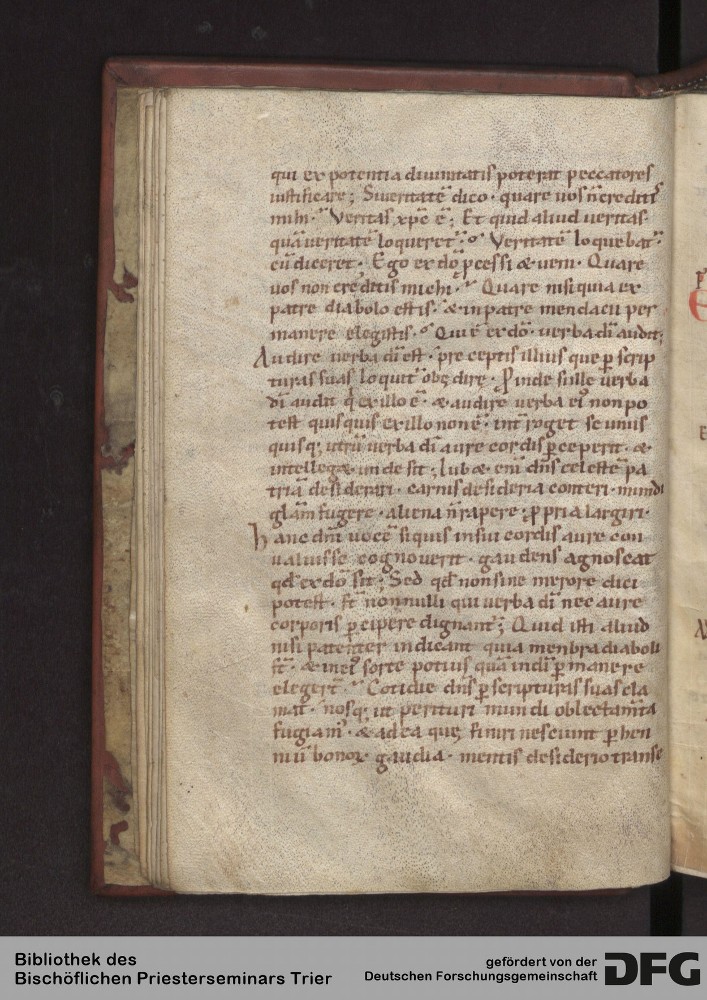 qui ex potentia diuinitatis poterat peccatores
iustificare; Si ueritatē dico· quare uos ñ creditis
mihi·? Veritas xp̄c ē; Et quid aliud ueritas·
quā ueritatē loqueret᷑·? Veritatē loquebat᷑·
cū diceret· Ego ex dō ꝓcessi & ueni· Quare
uos non creditis michi·? Quare nisi quia ex
patre diabolo estis· & in patre mendacii per
manere elegistis·? Qui ē ex dō· uerba dī audit;
Audire uerba dī est· preceptis illius que ꝑ scrip
turas suas loquit᷑ obędirę· Proinde sille uerba
dī audit q̇ ex illo ē· & audire uerba ei᷒ non po
test quisquis ex illo non ē· int̄roget se unus
quisq; utrū uerba dī aure cordis ꝑceperit· &
intellegat unde sit; Iubet enī dn̄s celestē pa
triā desiderari· carnis desideria conteri· mundi
glām fugere· aliena ñ rapere· ꝓpria largiri·
Hanc dnī uocē siquis in sui cordis aure con
ualuisse cognouerit· gaudens agnoscat
qđ ex dō sit; Sed qđ non sine merore dici
potest· st̄ nonnulli qui uerba dī nec aure
corporis ꝑcipere dignant᷑; Quid isti aliud
nisi patenter indicant quia menbra diaboli
st̄· & in ei᷒ sorte potius quā in dī ꝑmanere
elegert̄·? Cotidie dn̄s ꝑ scripturas suas cla
mat· nosq; ut perituri mundi oblectam̄ta
fugiam᷒· & ad ea quę finiri nesciunt ꝑhen
niū bonoꝝ gaudia· mentis desiderio transe
Bibliothek des
Bischöflichen Priesterseminars Trier
gefördert von der
Deutschen Forschungsgemeinschaft
DFG